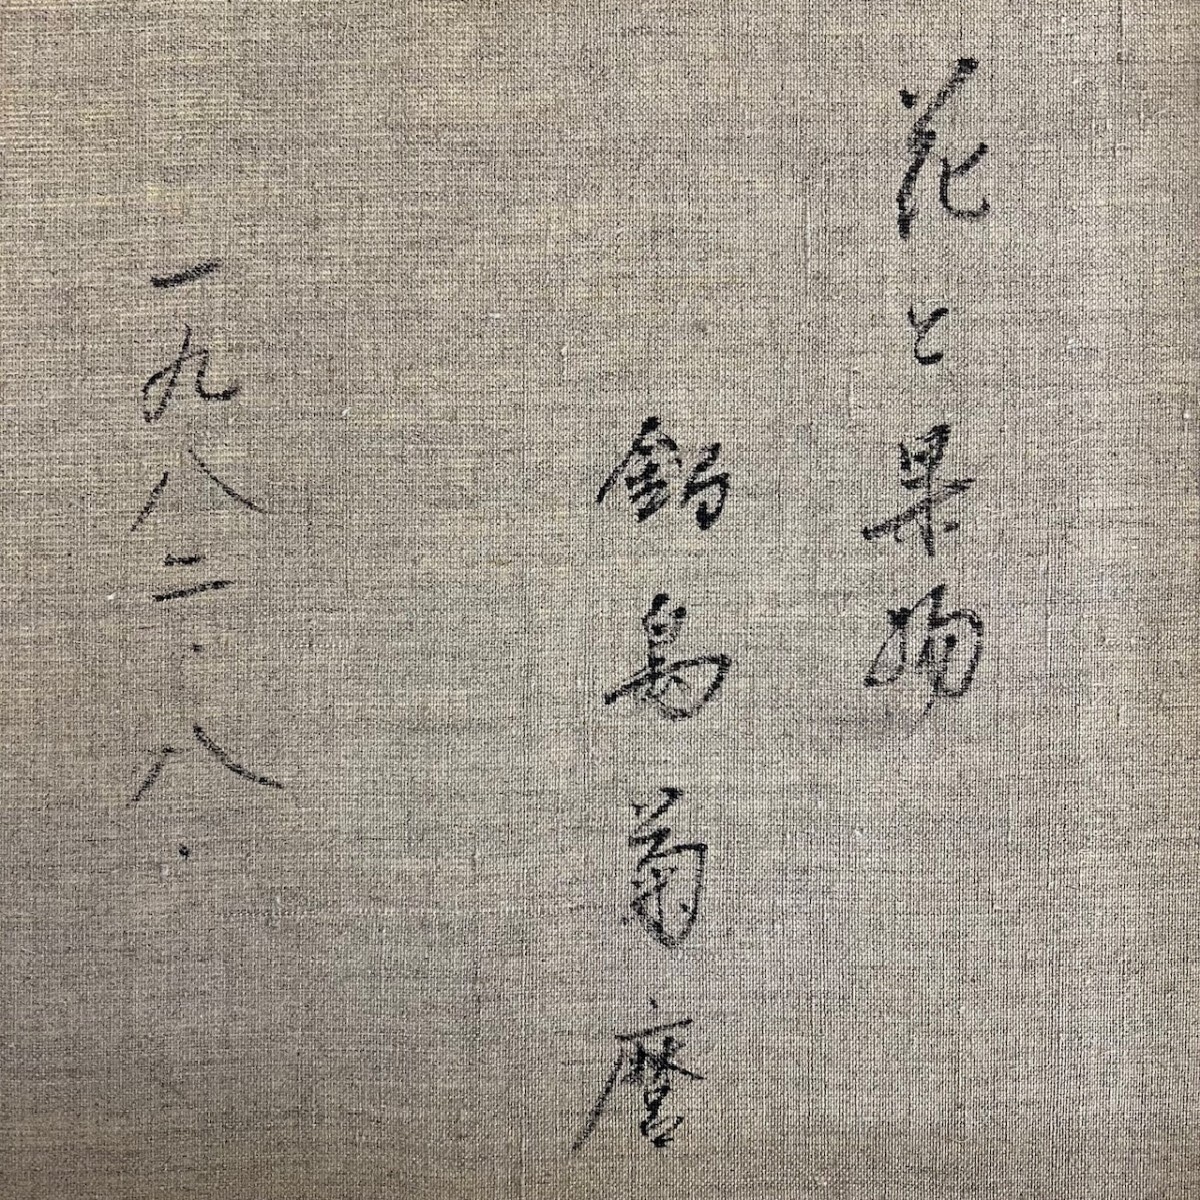 花と果物
鍋島菊麿
一九八二・八・